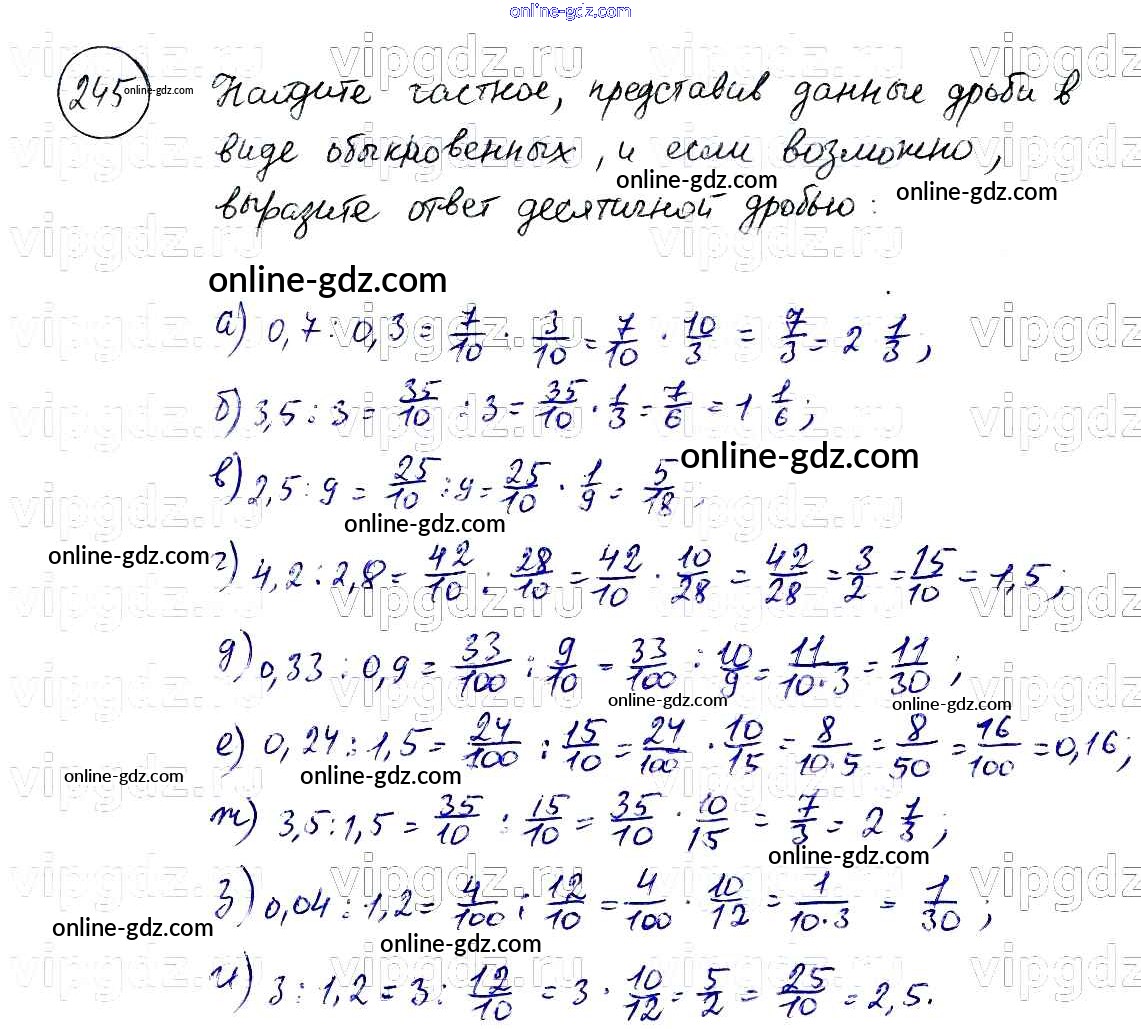 online-gdz.com
245 online-gdz.com Найдите частное, представив данные дроби в
виде обыкновенных, и если возможно,
online-gdz.com online-gdz.com
выразите ответ десятичной дробью:
online-gdz.com
а) 0,7 : 0,3 = 7/10 : 3/10 = 7/10 · 10/3 = 7/3 = 2 1/3;
б) 3,5 : 3 = 35/10 : 3 = 35/10 · 1/3 = 7/6 = 1 1/6;
online-gdz.com
в) 2,5 : 9 = 25/10 : 9 = 25/10 · 1/9 = 5/18.
online-gdz.com
online-gdz.com
г) 4,2 : 2,8 = 42/10 : 28/10 = 42/10 · 10/28 = 42/28 = 3/2 = 15/10 = 1,5;
д) 0,33 : 0,9 = 33/100 : 9/10 = 33/100 : 10/9 = 11/10·3 = 11/30;
online-gdz.com online-gdz.com
е) 0,24 : 1,5 = 24/100 : 15/10 = 24/100 · 10/15 = 8/10·5 = 8/50 = 16/100 = 0,16;
online-gdz.com online-gdz.com
ж) 3,5 : 1,5 = 35/10 : 15/10 = 35/10 · 10/15 = 7/3 = 2 1/3;
online-gdz.com
з) 0,04 : 1,2 = 4/100 : 12/10 = 4/100 · 10/12 = 1/10·3 = 1/30;
online-gdz.com online-gdz.com
и) 3 : 1,2 = 3 : 12/10 = 3 · 10/12 = 5/2 = 25/10 = 2,5.